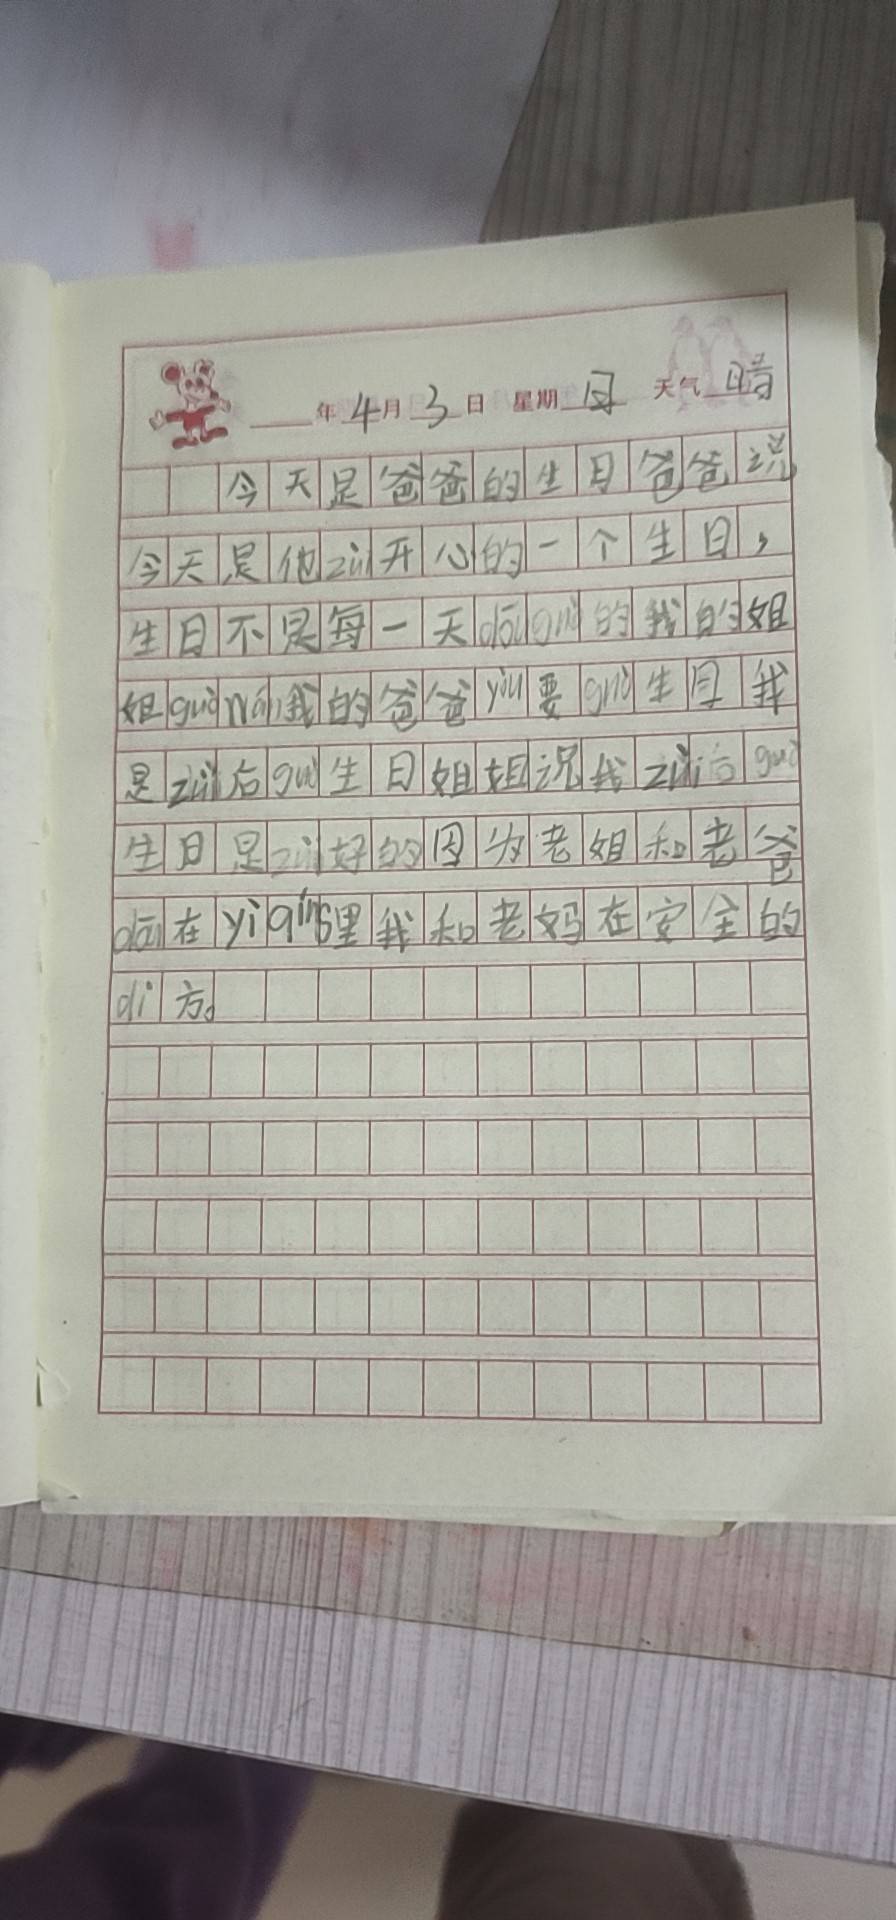 年4月3日 星期日 天气晴
今天是爸爸的生日爸爸说
今天是他zuì开心的一个生日，
生日不是每一天dōuguò的我的姐
姐guòwán我的爸爸yòu要guò生日我
是zuì后guò生日姐姐说我zuì后guò
生日是zuì好的因为老姐和老爸
dōu在yìqíng里我和老妈在安全的
dì方。